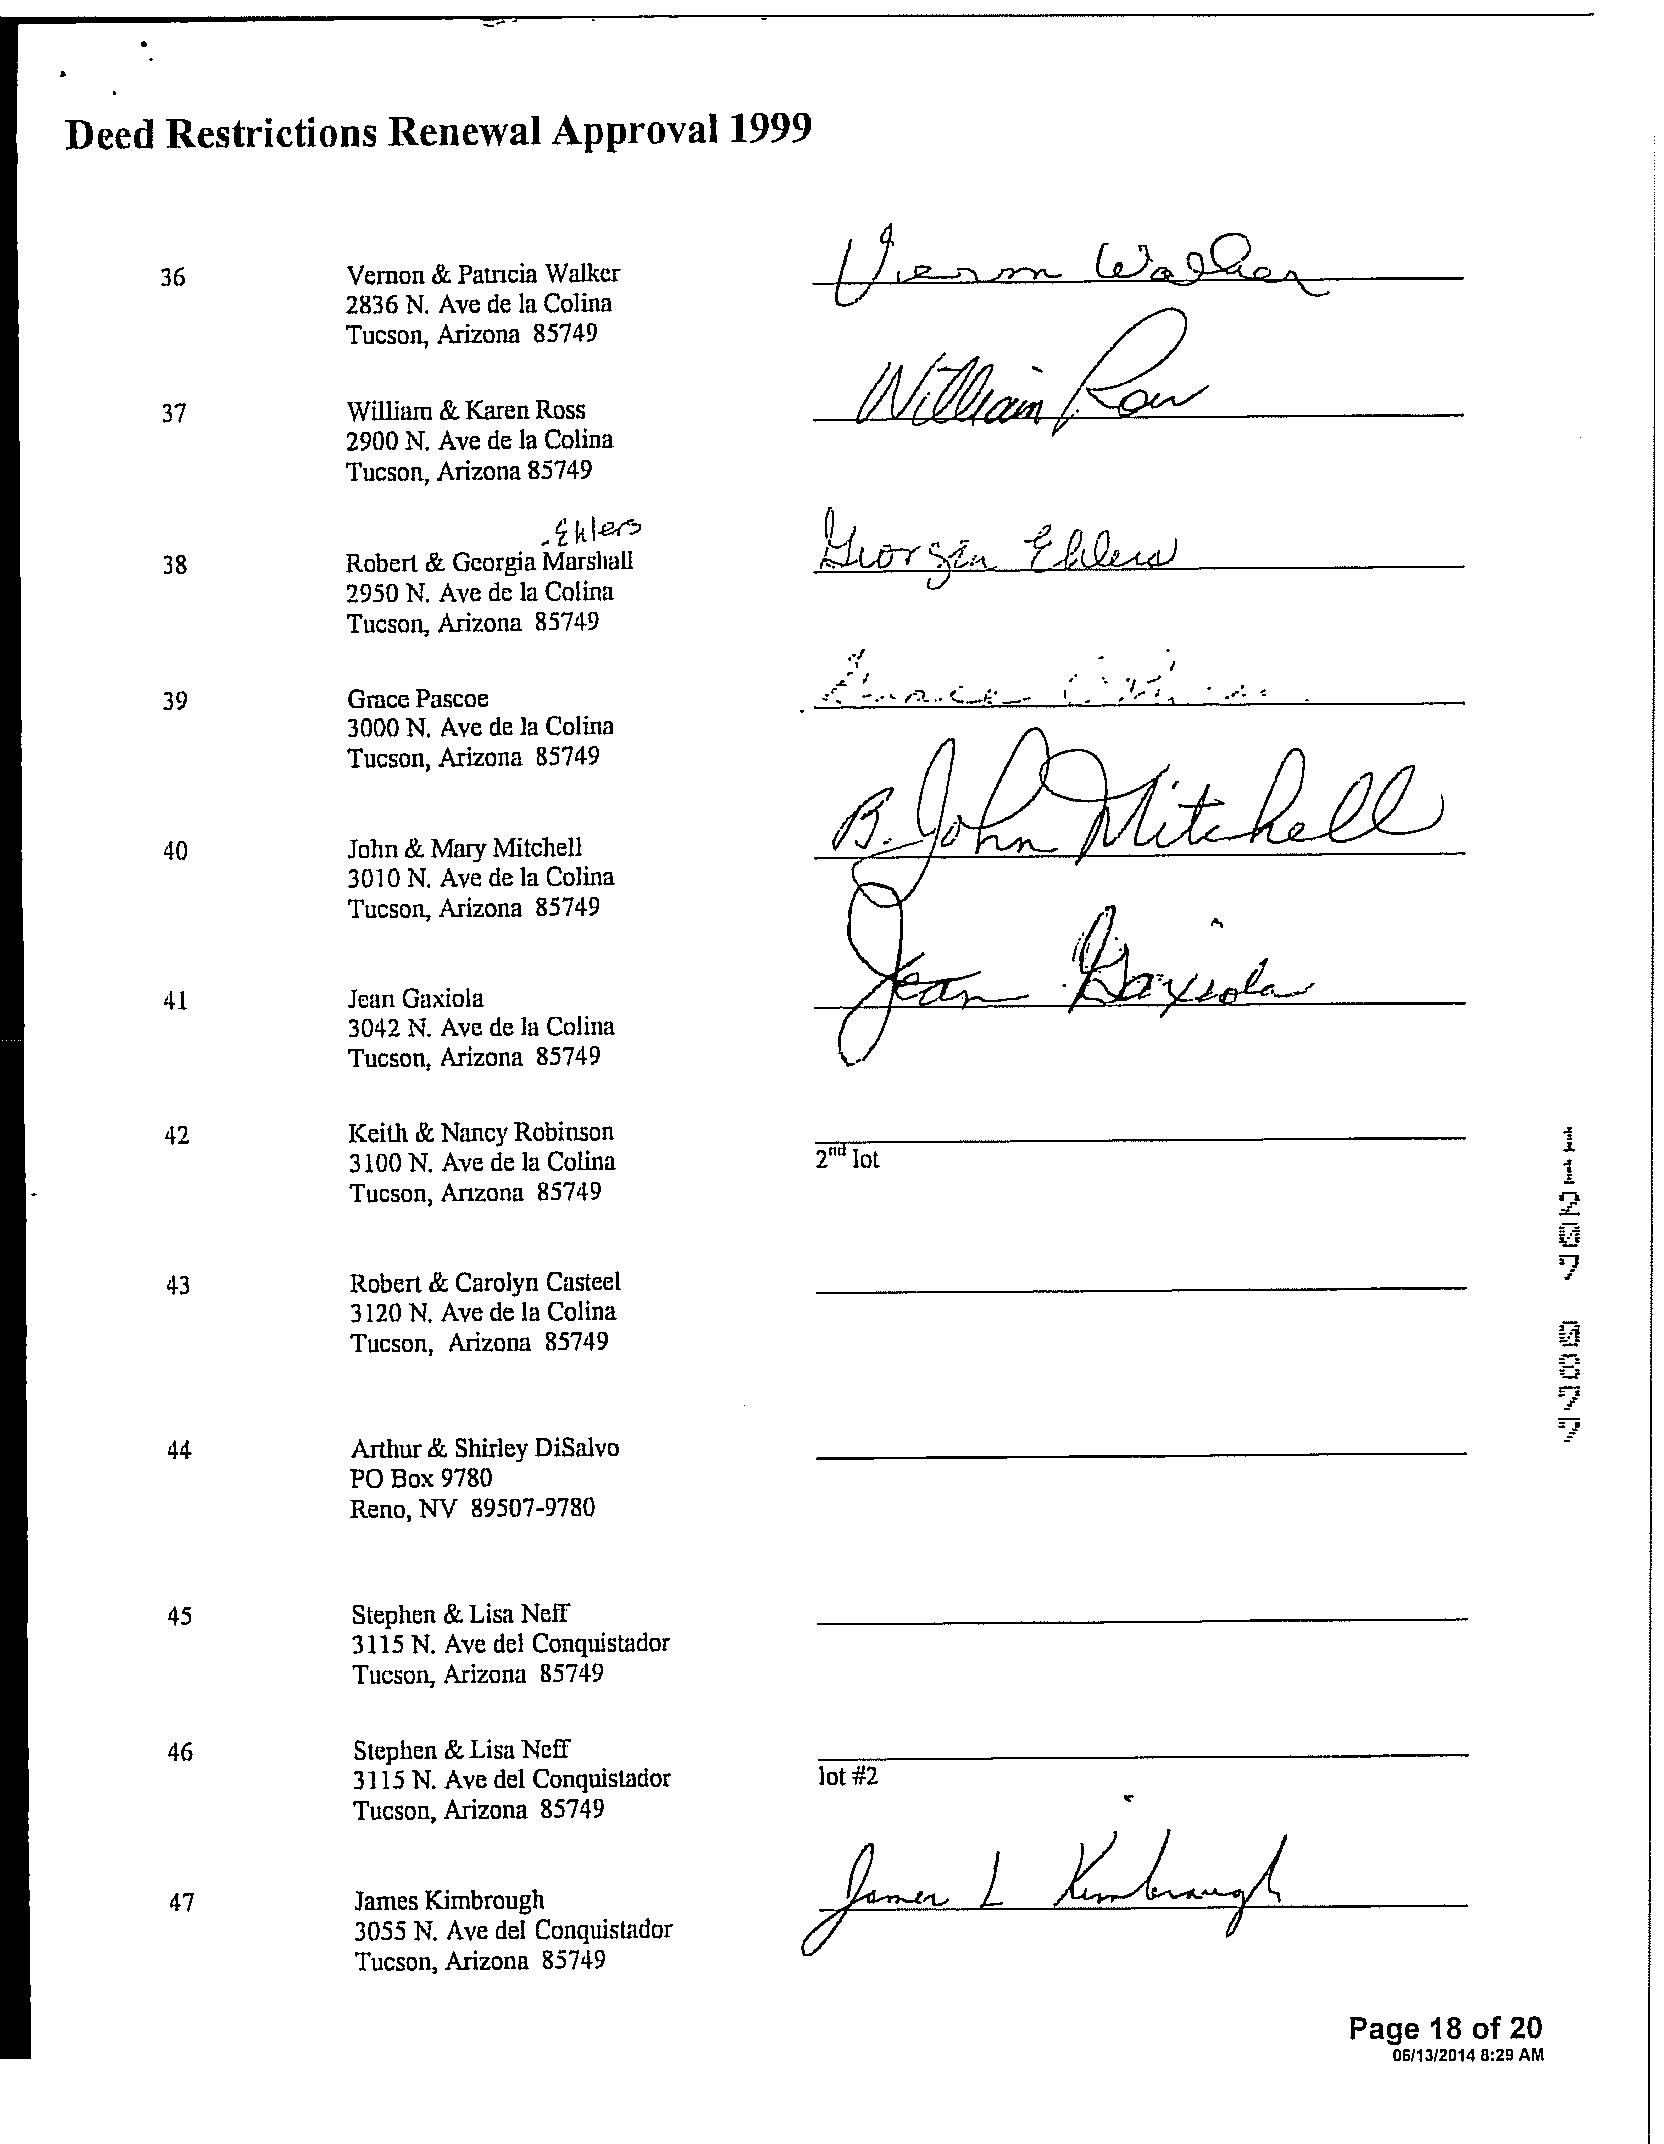 Deed Restrictions Renewal Approval 1999
36 Vernon & Patricia Walker Vernon Walker
2836 N. Ave de la Colina
Tucson, Arizona 85749
37 William & Karen Ross William Ross
2900 N. Ave de la Colina
Tucson, Arizona 85749
Ehlers
38 Robert & Georgia Marshall Georgia Ehlers
2950 N. Ave de la Colina
Tucson, Arizona 85749
39 Grace Pascoe Grace
3000 N. Ave de la Colina
Tucson, Arizona 85749
40 John & Mary Mitchell B. John Mitchell
3010 N. Ave de la Colina
Tucson, Arizona 85749
41 Jean Gaxiola Jean Gaxiola
3042 N. Ave de la Colina
Tucson, Arizona 85749
42 Keith & Nancy Robinson
3100 N. Ave de la Colina 2nd lot
Tucson, Arizona 85749
43 Robert & Carolyn Casteel
3120 N. Ave de la Colina
Tucson, Arizona 85749
44 Arthur & Shirley DiSalvo
PO Box 9780
Reno, NV 89507-9780
45 Stephen & Lisa Neff
3115 N. Ave del Conquistador
Tucson, Arizona 85749
46 Stephen & Lisa Neff
3115 N. Ave del Conquistador lot #2
Tucson, Arizona 85749
47 James Kimbrough James L Kimbrough
3055 N. Ave del Conquistador
Tucson, Arizona 85749
Page 18 of 20
06/13/2014 8:29 AM